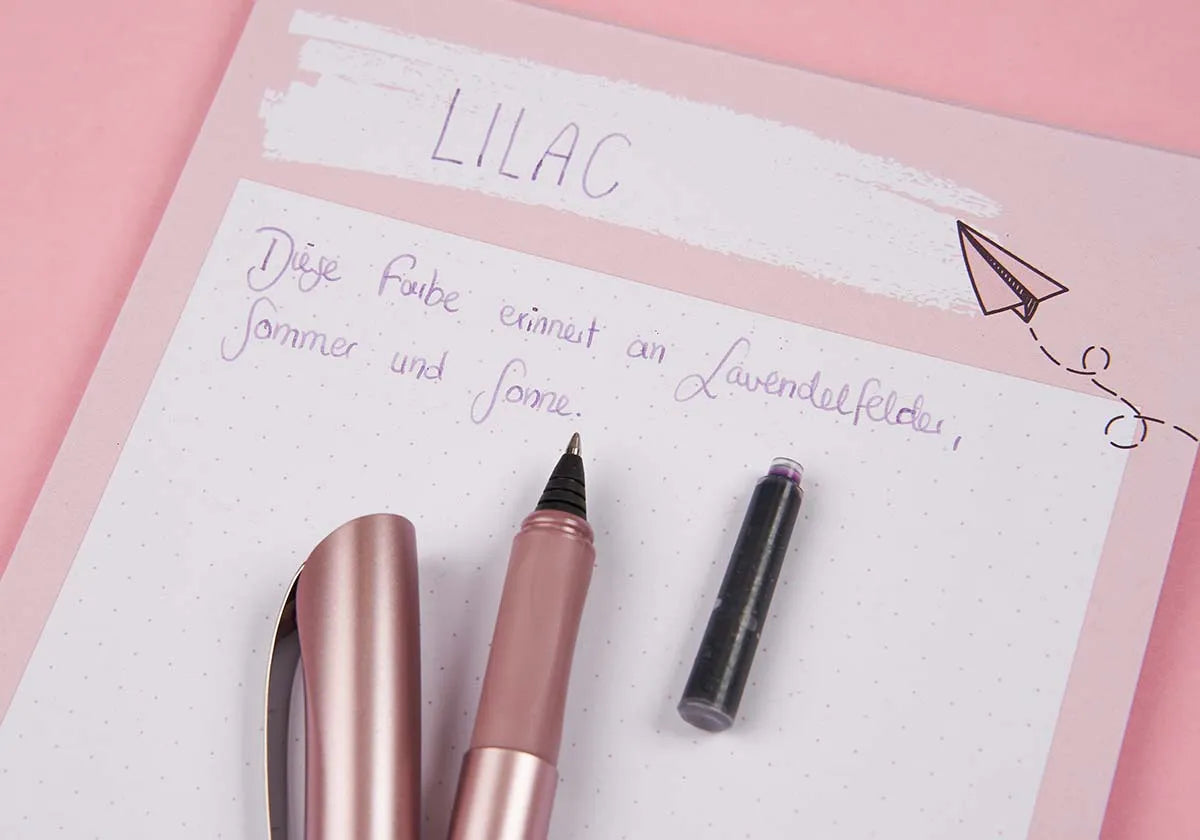 LILAC
Diese Farbe erinnert an Lavendelfelder,
Sommer und Sonne.